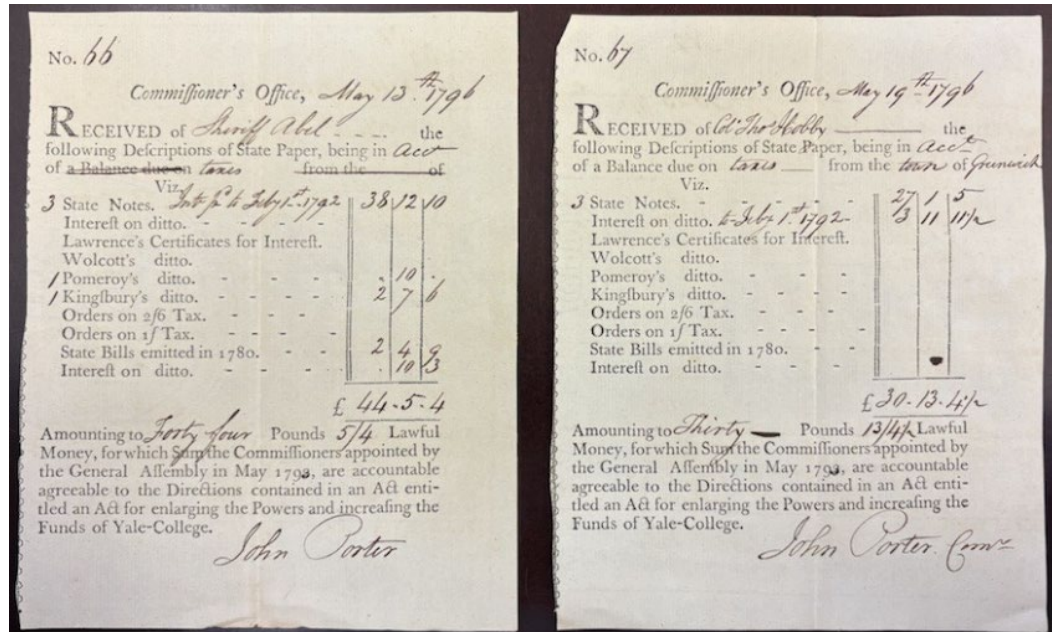 No. 66
Commiſſioner's Office, May 13.th 1796
RECEIVED of Sheriff Abel - - - - the
following Deſcriptions of State Paper, being in acct
of a Balance due on taxes from the of
Viz.
3 State Notes. Intr pd to Feby 1st 1792 38 12 10
Intereſt on ditto.
Lawrence's Certificates for Intereſt.
Wolcott's ditto.
1 Pomeroy's ditto. - - - - . 10 .
1 Kingſbury's ditto. - - - - 2 7 6
Orders on 2ſ6 Tax. - - - -
Orders on 1ſ Tax. - - - -
State Bills emitted in 1780. - - 2 4 9
Intereſt on ditto. - - - - . 10 3
£ 44-5-4
Amounting to Forty four Pounds 5/4 Lawful
Money, for which Sum the Commiſſioners appointed by
the General Aſſembly in May 1793, are accountable
agreeable to the Directions contained in an Act enti-
tled an Act for enlarging the Powers and increaſing the
Funds of Yale-College.
John Porter
No. 67
Commiſſioner's Office, May 19th 1796
RECEIVED of Col. Thos Hobby the
following Deſcriptions of State Paper, being in acct
of a Balance due on taxes from the town of Greenwich
Viz.
3 State Notes. - - - - - 27 1 5
Intereſt on ditto. to Feby 1st 1792 - 3 11 11½
Lawrence's Certificates for Intereſt.
Wolcott's ditto.
Pomeroy's ditto. - - - -
Kingſbury's ditto. - - - -
Orders on 2ſ6 Tax. - - - -
Orders on 1ſ Tax. - - - -
State Bills emitted in 1780. - -
Intereſt on ditto. - - - -
£ 30-13-4½
Amounting to Thirty — Pounds 13/4½ Lawful
Money, for which Sum the Commiſſioners appointed by
the General Aſſembly in May 1793, are accountable
agreeable to the Directions contained in an Act enti-
tled an Act for enlarging the Powers and increaſing the
Funds of Yale-College.
John Porter Comr